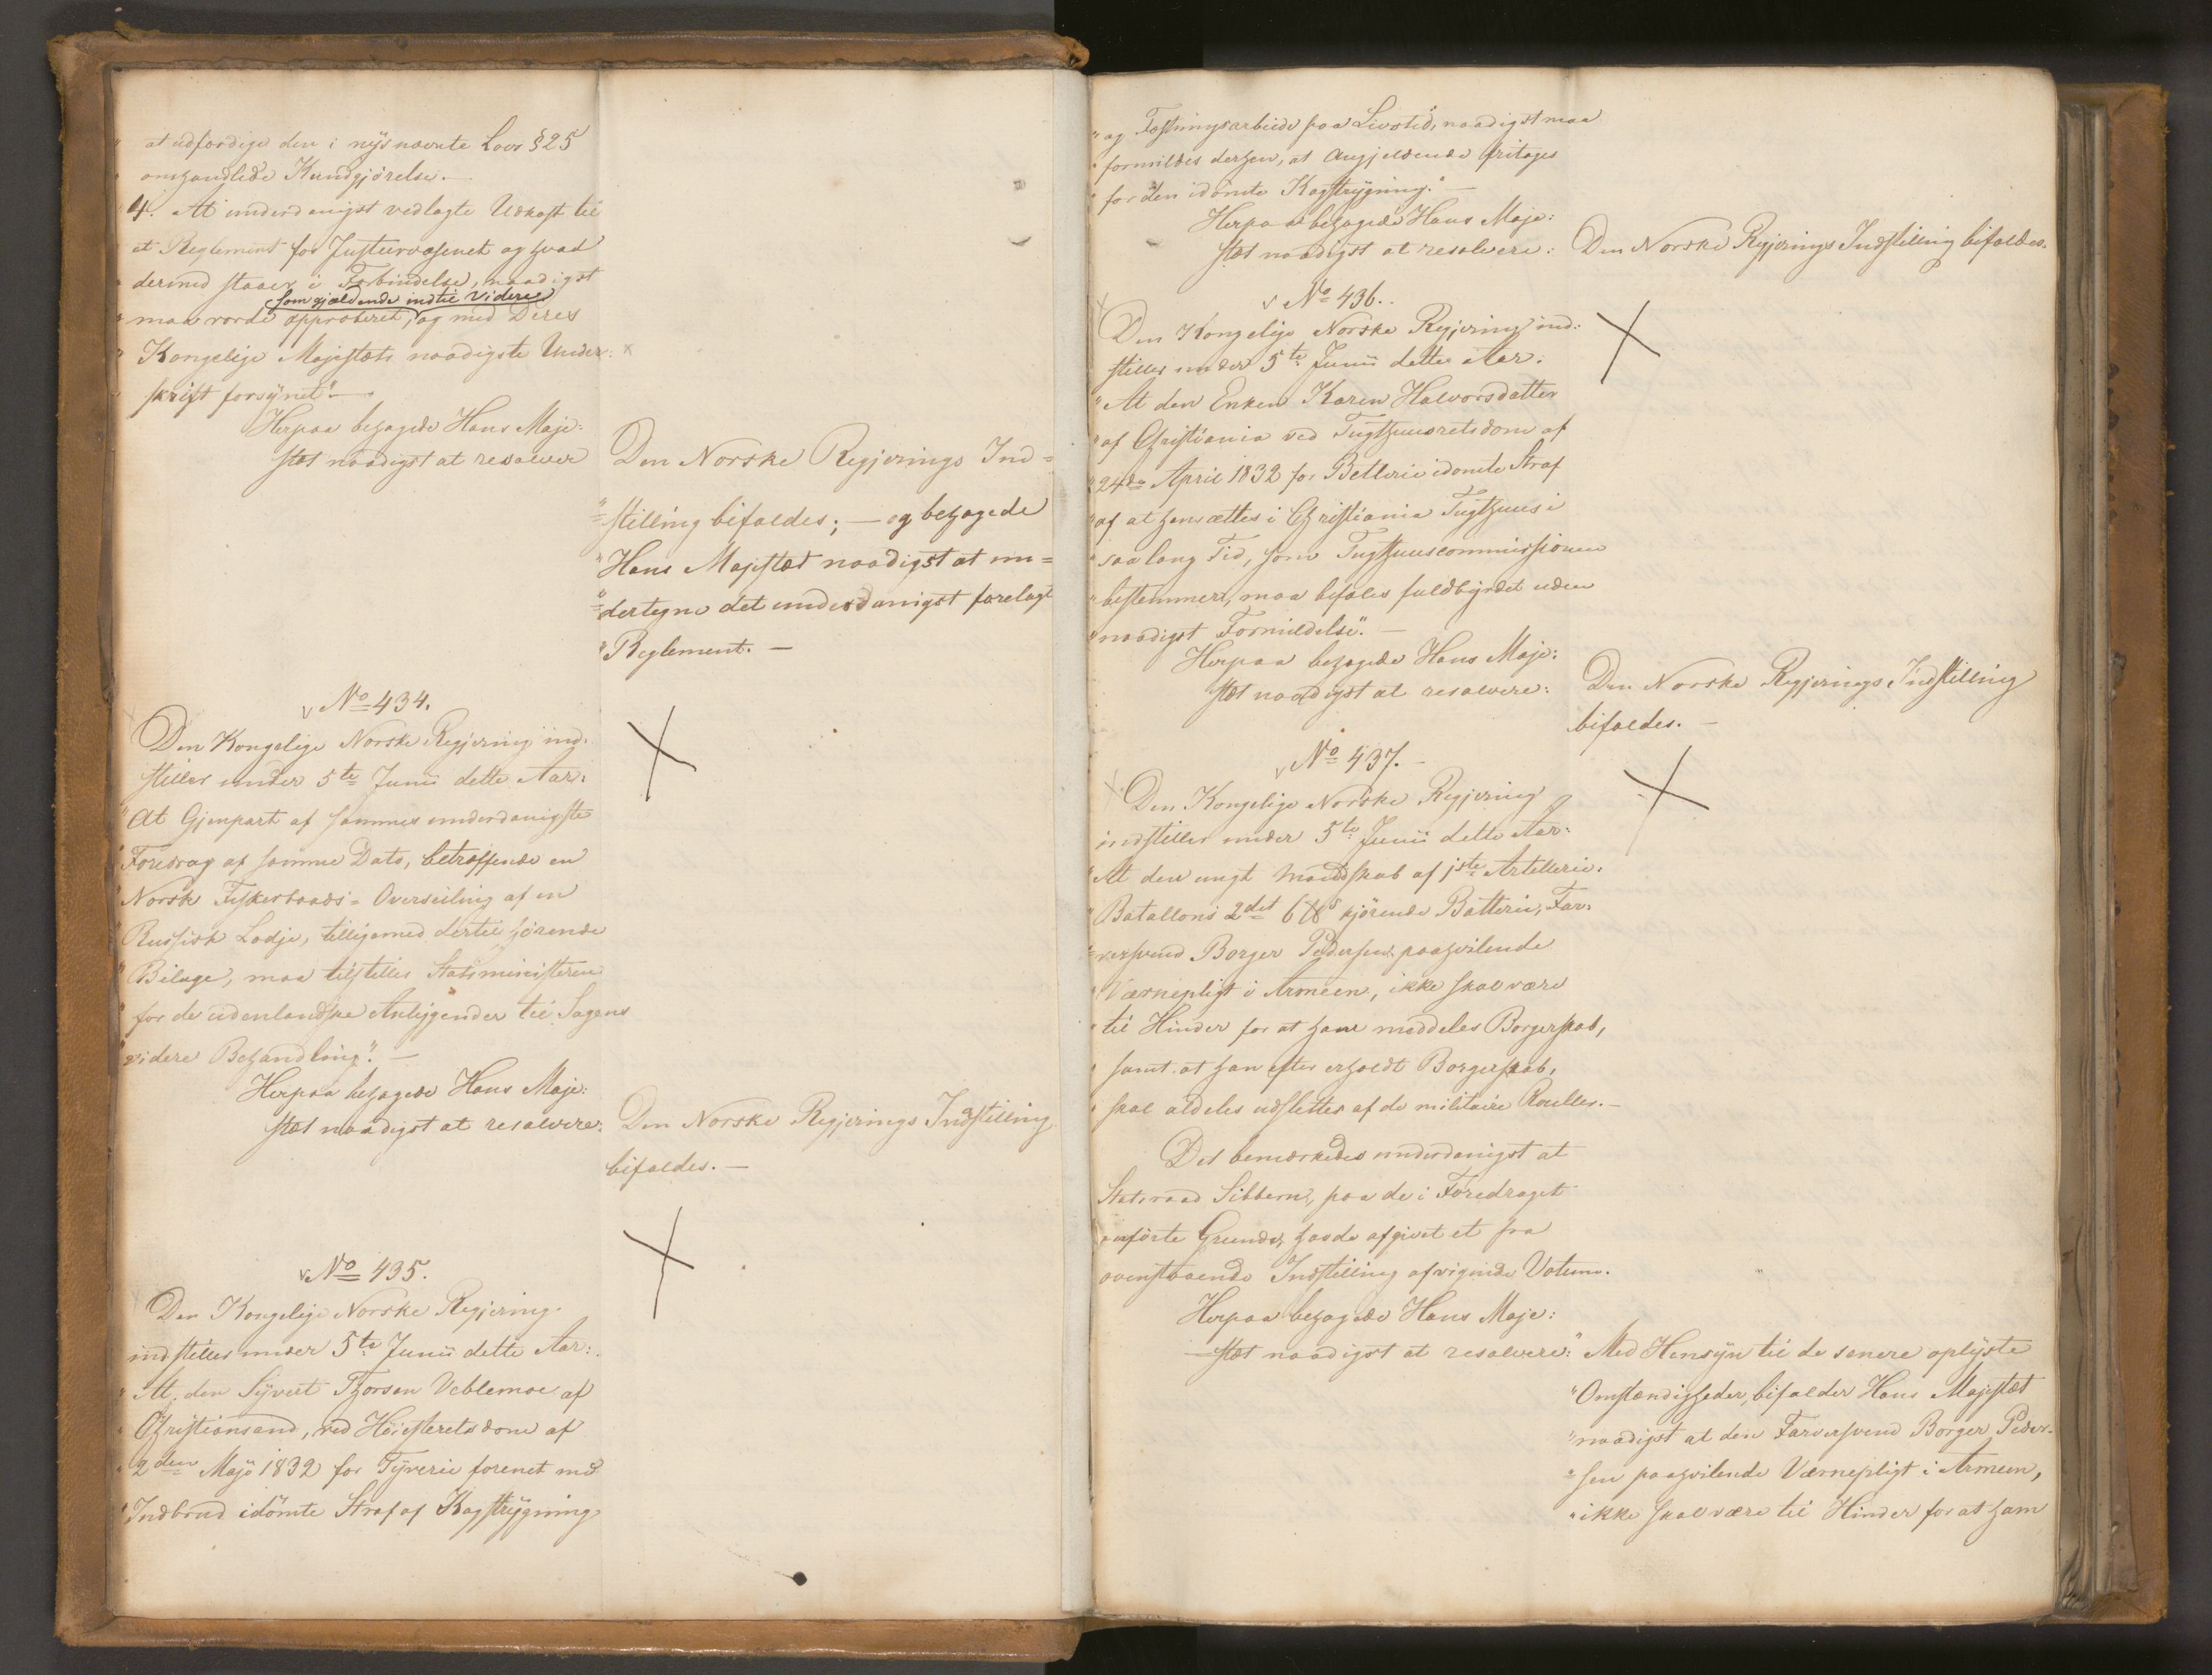 " at udfærdige den i nysnævnte Lovs §25
" omhandlede Kundgjörelse. —
" 4. At underdanigst vedlagte Udkast til
et Reglement for Justeervæsenet og hvad
" dermed staaer i Forbindelse, naadigst
som gjældende indtil Videre
" maa vorde approberet, og med Deres
" Kongelige Majestæts naadigste Under:
" skrift forsynet". —
Herpaa behagede Hans Maje:
stæt naadigst at resolvere
Den Norske Regjerings Ind=
"stilling bifaldes; — og behagede
"Hans Majestæt naadigst at un=
"dertegne det underdanigst forelagte
"Reglement. —
No 434.
Den Kongelige Norske Regjering ind:
stiller under 5te Junii dette Aar:
"At Gjenpart af sammes underdanigste
"Foredrag af samme Dato, betræffende en
"Norsk Fiskerbaads = Overseiling af en
"Russisk Lodje, tilligemed dertil hörende
"Bilage, maa tilstilles Statsministeren
" for de udenlandske Anliggender til Sagens
"videre Behandling". —
Herpaa behagede Hans Maje:
stæt naadigst at resolvere:
Den Norske Regjerings Indstilling
bifaldes. —
No 435.
Den Kongelige Norske Regjering
indstiller under 5te Junii dette Aar:
" At den Syvert Thorsen Veblemoe af
" Christiansand, ved Höiesteretsdom af
" 2den Majo 1832 for Tyverie forenet med
"Indbrud idömte Straf af Kagstrygning
" og Fæstningsarbeide paa Livstid, naadigst maa
" formildes derhen, at Angjeldende fritages
" for den idömte Kagstrygning." —
Herpaa behagede Hans Maje:
stæt naadigst at resolvere:
Den Norske Regjerings Indstilling bifaldes.
No 436.
Den Kongelige Norske Regjering ind:
stiller under 5te Junii dette Aar:
"At den Enken Karen Halvorsdatter
"af Christiania ved Tugthuusretsdom af
"24de April 1832 for Betlerie idömte Straf
"af at hensættes i Christiania Tugthuus i
"saa lang Tid, som Tugthuuscommissionen
"bestemmer, maa befales fuldbyrdet uden
"naadigst Formildelse". —
Herpaa behagede Hans Maje:
stæt naadigst at resolvere:
Den Norske Regjerings Indstilling
bifaldes. —
No 437. —
Den Kongelige Norske Regjering
indstiller under 5te Junii dette Aar:
"At den ungt Mandskab af 1ste Artillerie:
"Batallons 2det 6 ℔s kjörende Batterie, Far:
"versvend Borger Pedersen paahvilende
"Værnepligt i Armeen, ikke skal være
" til Hinder for at ham meddeles Borgerskab,
" samt at han efter erholdt Borgerskab,
" skal aldeles udslettes af de militaire Roeller. —
Det bemærkedes underdanigst at
Statsraad Sibbern, paa de i Foredraget
anförte Grunde, havde afgivet et fra
ovenstaaende Indstilling afvigende Votum.
Herpaa behagede Hans Maje:
stæt naadigst at resolvere:
" Med Hensyn til de senere oplyste
"Omstændigheder, bifalder Hans Majestæt
"naadigst at den Farversvend Borger Peder:
"sen paahvilende Værnepligt i Armeen,
"ikke skal være til Hinder for at ham